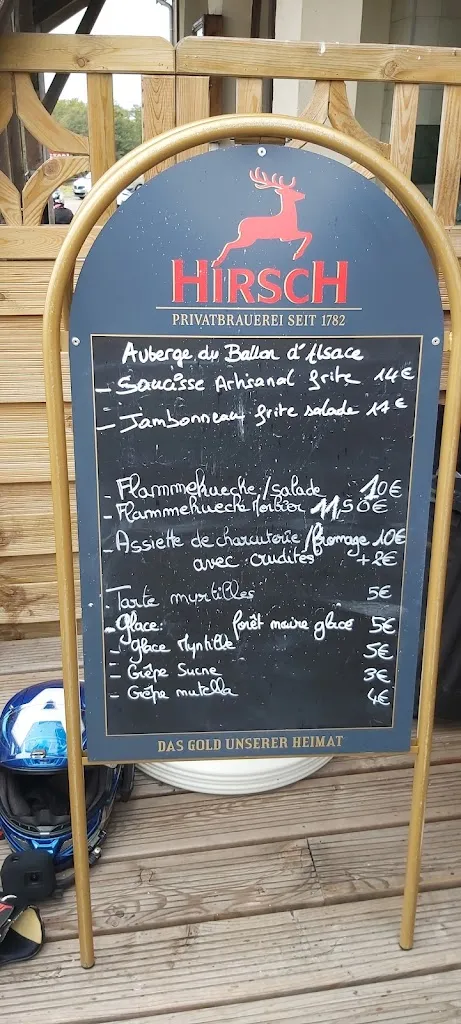 HIRSCH
PRIVATBRAUEREI SEIT 1782
Auberge du Ballon d'Alsace
- Saucisse Artisanal frite 14€
- Jambonneau frite salade 14€
- Flammekueche/salade 10€
- Flammekueche Morbier 11,50€
- Assiette de charcuterie/fromage 10€
avec crudités +2€
- Tarte myrtilles 5€
- Glace: forêt noire glacé 5€
- Glace Myrtille 5€
- Crêpe Sucre 3€
- Crêpe nutella 4€
DAS GOLD UNSERER HEIMAT